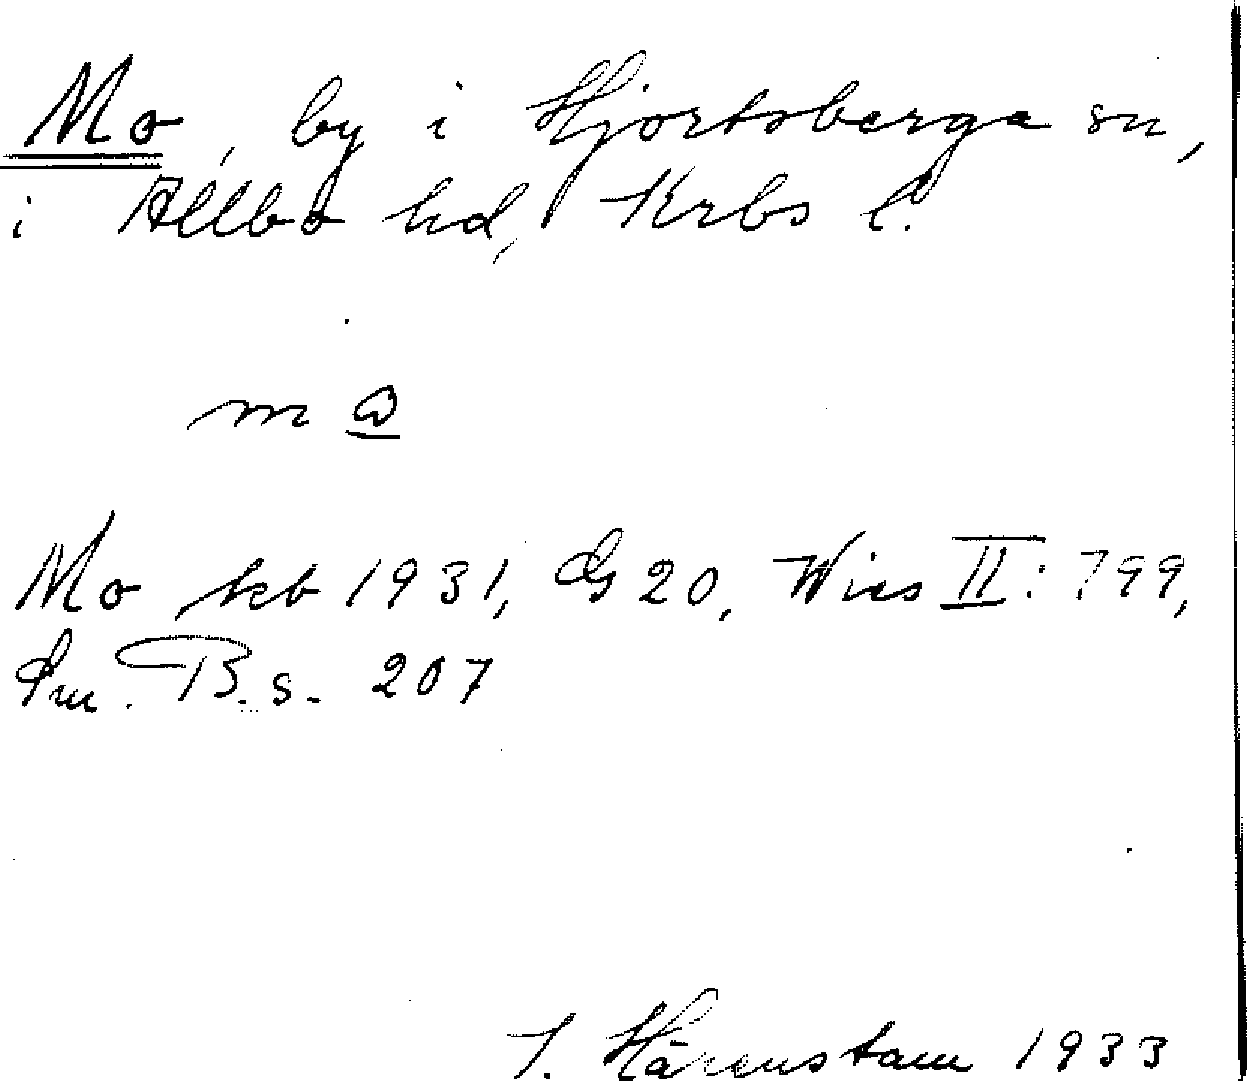 Mo, by i Hjortsberga sn,
i Allbo hd, Krbs l.
Mo kb 1931, GS 20, Wies II: 799,
Sm. B. s. 207
J. Härenstam 1933